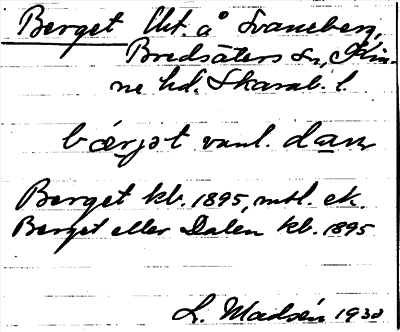 Berget lht. å Svaneberg,
Bredsäters sn, Kin-
ne hd. Skarab. l.
bærjət vanl. dan
Berget kb. 1895, mtl. ek.
Berget eller Dalen kb. 1895
L. Madsén 1930